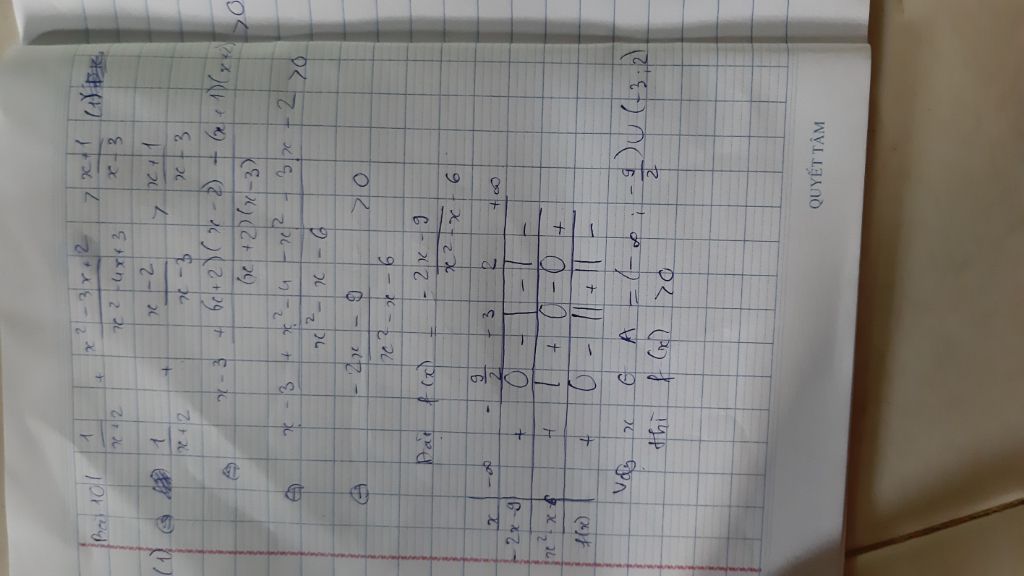 Bài 10/ 1/(x+2) + (x² - 3x + 2)/(x² - 4x + 3) > (x+1)/(x-3) (1)
(1) ⇔ 1/(x+2) + (x-2)/(x-3) > (x+1)/(x-3)
⇔ (x-3 + (x+2)(x-2) - (x+1)(x+2))/((x+2)(x-3)) > 0
⇔ (x-3 + x²-4 - x² - 3x - 2)/(x² - x - 6) > 0
⇔ (-2x - 9)/(x² - x - 6) > 0
Đặt f(x) = (-2x - 9)/(x² - x - 6)
x | -∞ -9/2 -3 2 +∞
-2x-9 | + 0 - | - | -
x²-x-6 | + | + 0 - 0 +
f(x) | + 0 - || + || -
Vậy x ∈ A = (-∞ ; -9/2) ∪ (-3 ; 2)
thì f(x) > 0
QUYẾT TÂM